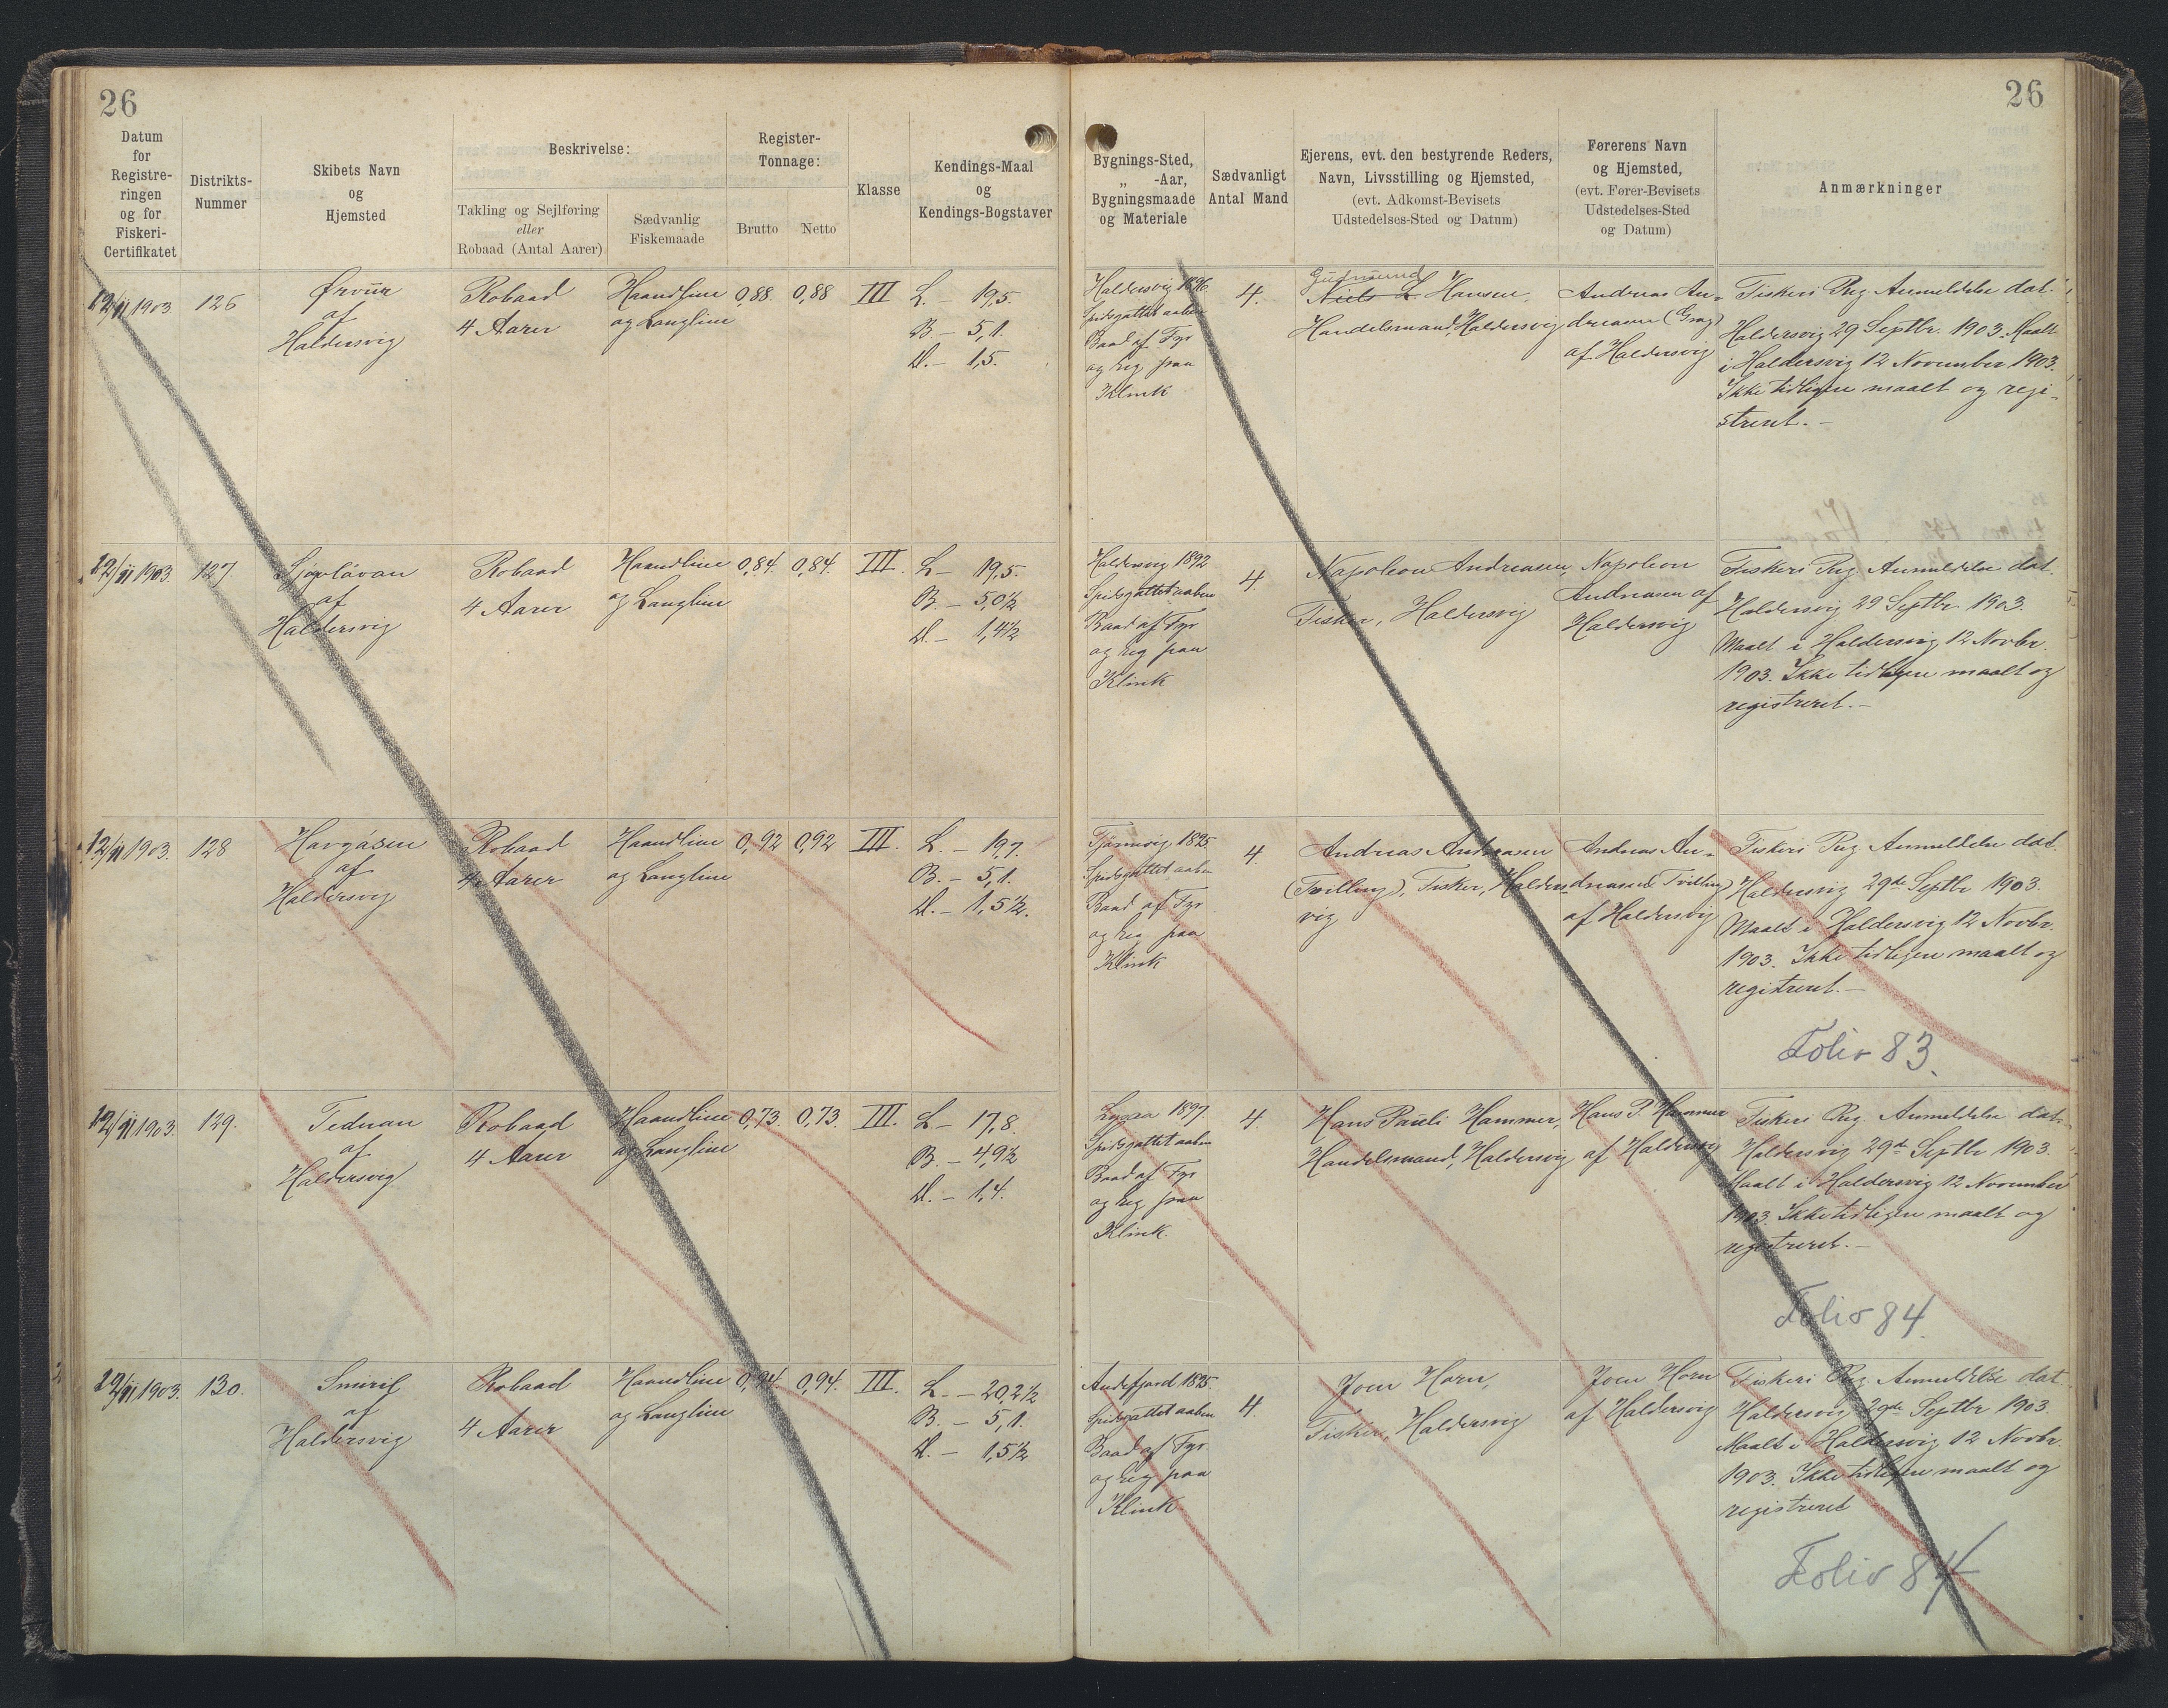 26
26
Datum
for
Registre-
ringen
og for
Fiskeri-
Certifikatet
Distrikts-
Nummer
Skibets Navn
og
Hjemsted
Beskrivelse:
Takling og Sejlføring
eller
Robaad (Antal Aarer)
Sædvanlig
Fiskemaade
Register-
Tonnage:
Brutto
Netto
Klasse
Kendings-Maal
og
Kendings-Bogstaver
Bygnings-Sted,
„ -Aar,
Bygningsmaade
og Materiale
Sædvanligt
Antal Mand
Ejerens, evt. den bestyrende Reders,
Navn, Livsstilling og Hjemsted,
(evt. Adkomst-Bevisets
Udstedelses-Sted og Datum)
Førerens Navn
og Hjemsted,
(evt. Fører-Bevisets
Udstedelses-Sted
og Datum)
Anmærkninger
12/11 1903
126
Ørvur
af
Haldersvig
Robaad
4 Aarer
Haandline
og Langline
0,88.
0,88
III
L. – 19,5.
B – 5,1.
D. – 1,5.
Haldersvig 1896
Spidsgattet aaben
Baad af Fyr
og Eeg paa
Klink
4.
Gudmund
Niels L Hansen,
Handelsmand, Haldersvig
Andreas An-
dreasen (Grag)
af Haldersvig
Fiskeri Reg. Anmeldelse dat.
Haldersvig 29 Septbr. 1903. Maalt
i Haldersvig 12 November 1903.
Ikke tidligere maalt og regi-
streret. –
12/11 1903.
127.
af
Haldersvig
Robaad
4 Aarer
Haandline
og Langline
0,84.
0,84.
III.
L – 19,5.
B. – 5,0½
D. – 1,4½
Haldersvig 1892
Spidsgattet aaben
Baad af Fyr
og Eeg paa
Klink
4.
Napoleon Andreasen,
Fisker, Haldersvig
Napoleon
Andreasen af
Haldersvig
Fiskeri Reg. Anmeldelse dat.
Haldersvig 29 Septbr. 1903.
Maalt i Haldersvig 12 Novbr.
1903. Ikke tidligere maalt og
registreret. –
12/11 1903.
128
Havgásin
af
Haldersvig
Robaad
4 Aarer
Haandline
og Langline
0,92
0,92
III.
L. – 19,7.
B. – 5,1.
D. – 1,5½.
Tjørnevig 1895
Spidsgattet aaben
Baad af Fyr
og Eeg paa
Klink
4.
Andreas Andreasen
(Tvilling), Fisker, Halders-
vig
Andreas An-
dreasen (Tvilling)
af Haldersvig
Fiskeri Reg. Anmeldelse dat.
Haldersvig 29de Septbr 1903.
Maalt i Haldersvig 12 Novbr.
1903. Ikke tidligere maalt og
registreret. –
Folio 83.
12/11 1903.
129.
af
Haldersvig
Robaad
4 Aarer
Haandline
og Langline
0,73.
0,73.
III.
L – 17,8.
B. – 4,9½
D. – 1,4.
1897
Spidsgattet aaben
Baad af Fyr
og Eeg paa
Klink.
4.
Hans Pauli Hammer,
Handelsmand, Haldersvig
Hans P. Hammer
af Haldersvig
Fiskeri Reg. Anmeldelse dat.
Haldersvig 29de Septbr 1903.
Maalt i Haldersvig 12 November
1903. Ikke tidligere maalt og
registreret. –
Folio 84.
12/11 1903.
130.
Smiril
af
Haldersvig
Robaad
4 Aarer
Haandline
og Langline
0,94
0,94.
III.
L. – 20,2½
B. – 5,1.
D. – 1,5½
Andefjord 1895.
Spidsgattet aaben
Baad af Fyr
og Eeg paa
Klink
4.
Joen Horn,
Fisker, Haldersvig
Joen Horn
af Haldersvig
Fiskeri Reg. Anmeldelse dat.
Haldersvig 29de Septbr 1903.
Maalt i Haldersvig 12 Novbr.
1903. Ikke tidligere maalt og
registreret
Folio 84